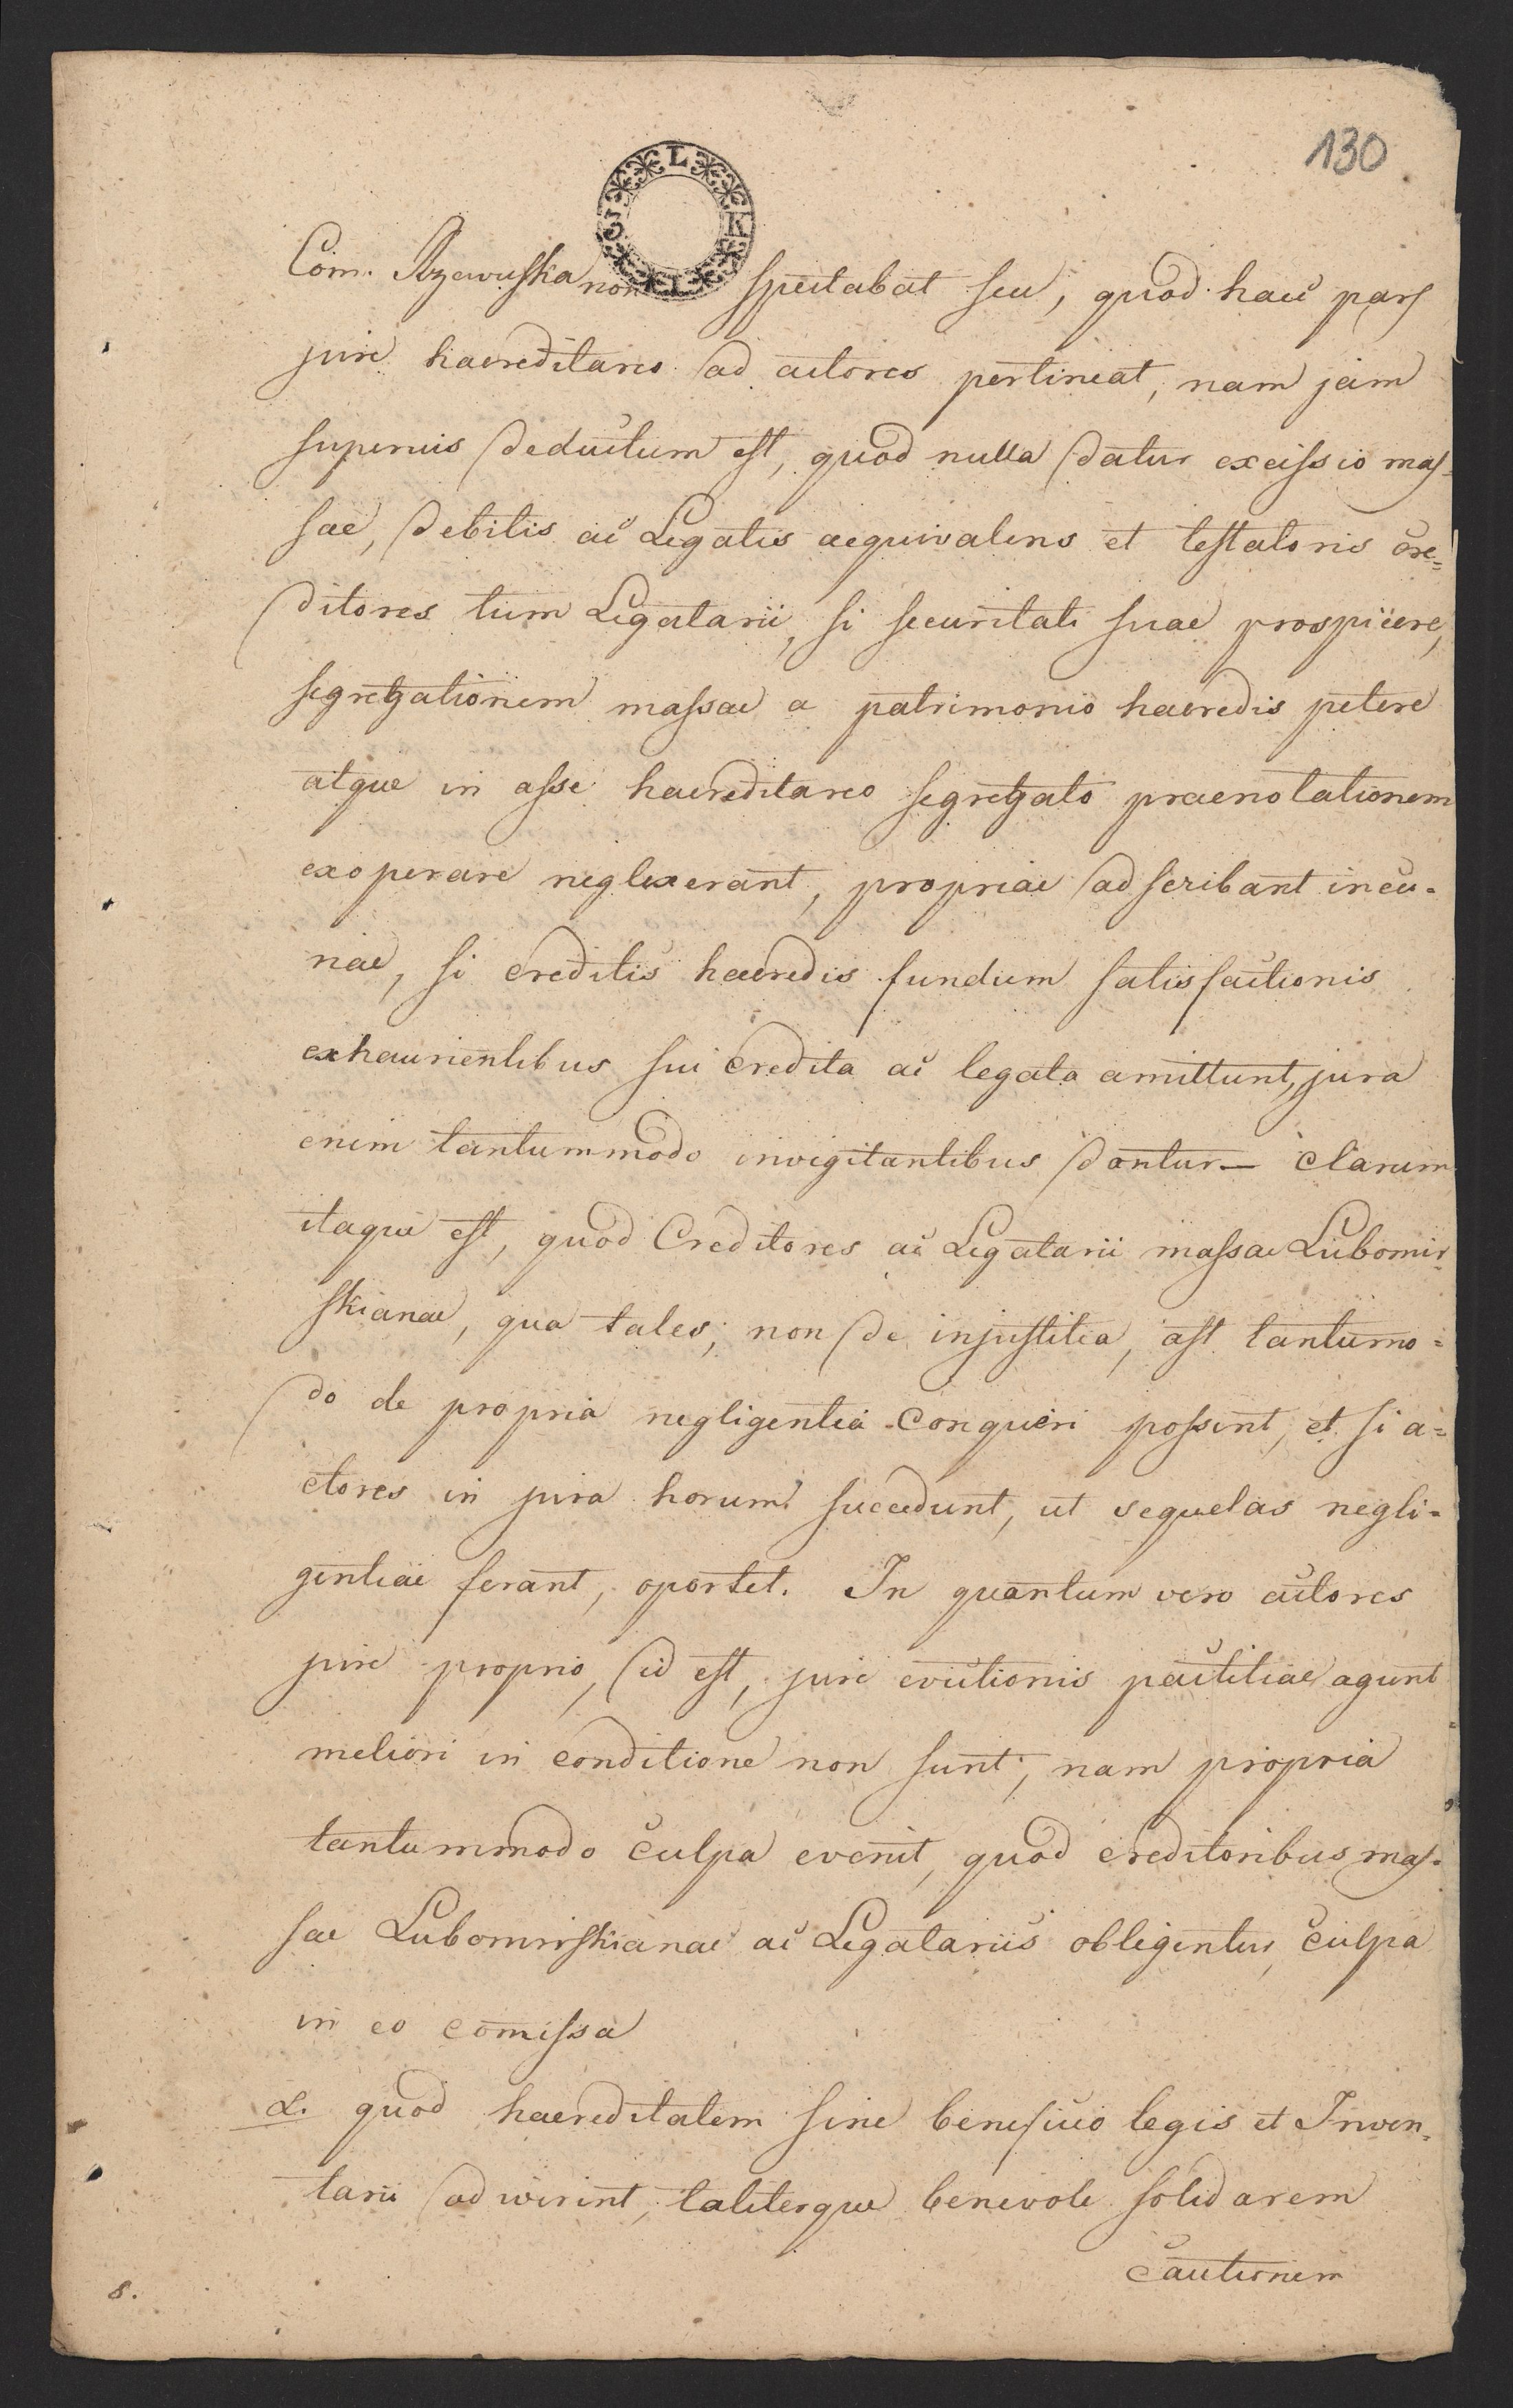 130
Com. Rzewuska non spectabat seu, quod haec pars
jure haereditario ad actores pertineat, nam jam
superius deductum est, quod nulla datur excissio mas-
sae, debitis ac Legatis aequivalens et testatoris cre=
ditores tum Legatarii, si securitati suae prospicere,
segregationem massae a patrimonio haeredis petere
atque in asse haereditario segregato praenotationem
exoperare neglexerant, propriae adscribant incu-
riae, si creditis haeredis fundum satisfactionis
exhaurientibus sui credita ac legata amittunt, jura
enim tantummodo invigilantibus dantur — Clarum
itaque est, quod Creditores ac Legatarii massae Lubomir-
skianae, qua tales, non de injustitia, ast tantumo=
do de propria negligentia conqueri possint, et si a=
ctores in jura horum succedunt, ut sequelas negli=
gentiae ferant, oportet. In quantum vero actores
jure proprio, id est, jure evictionis pactitiae agunt
meliori in conditione non sunt, nam propria
tantummodo culpa evenit, quod creditoribus mas-
sae Lubomirskianae ac Legatariis obligentur, culpa
in eo comissa
α. quod haereditatem sine beneficio legis et Inven-
tarii adiverint, taliterque benevole solidarem
Cautionem
8.